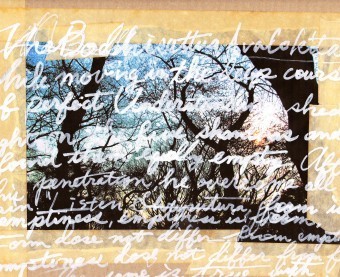 The Bodhisattva Avalokita
while moving in the deep course
of Perfect Understanding shed
light on the five skandhas and
found them equally empty. After
this penetration he overcame all
Listen Shariputra form is
emptiness, emptiness is form
form dose not differ from empti
emptiness dose not differ from f
The same is true with